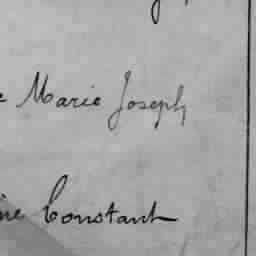 Marie Joseph
Constant